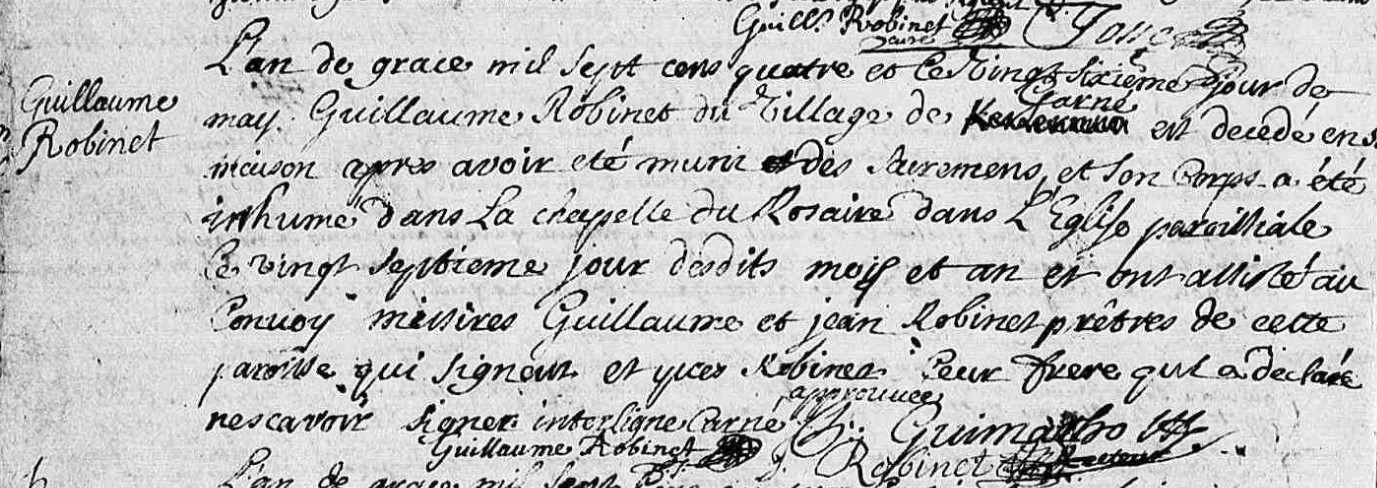 Guill. Robinet
L'an de grace mil sept cens quatre et le vingt sixieme jour de
Guillaume
Robinet
may. Guillaume Robinet du village de Carné est decedé en s
maison apres avoir eté muni des sacremens, et son corps a été
inhumé dans la chapelle du Rosaire dans l'Eglise paroissiale
le vingt septieme jour desdits mois et an et ont assisté au
convoy missires Guillaume et jean Robinet prêtres de cette
paroisse qui signent et yves Robinet leur frere qui a declaré
ne scavoir signer interligne Carné approuvée
Guillaume Robinet J. Guimarho
J. Robinet Recteur
L'an de grace mil sept